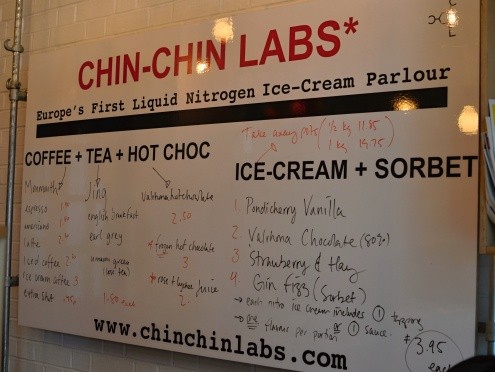 CHIN-CHIN LABS*
Europe's First Liquid Nitrogen Ice-Cream Parlour
COFFEE + TEA + HOT CHOC
Monmouth
espresso
americano
latte
Iced coffee
Ice cream coffee 3
extra shot .50
Jing
english breakfast
earl grey
green
1.50
Valrhona hot chocolate
2.50
* frozen hot chocolate
3
* rose + lychee juice
2
Take away pots (1/2 kg 11.85
1 kg 19.75)
ICE-CREAM + SORBET
1. Pondicherry Vanilla
2 Valrhona Chocolate (80%)
3 Strawberry & Hay
4. Gin fizz (Sorbet)
→ each nitro ice cream includes ① topping
→ one flavour per portion or ① sauce.
* 3.95
each
www.chinchinlabs.com